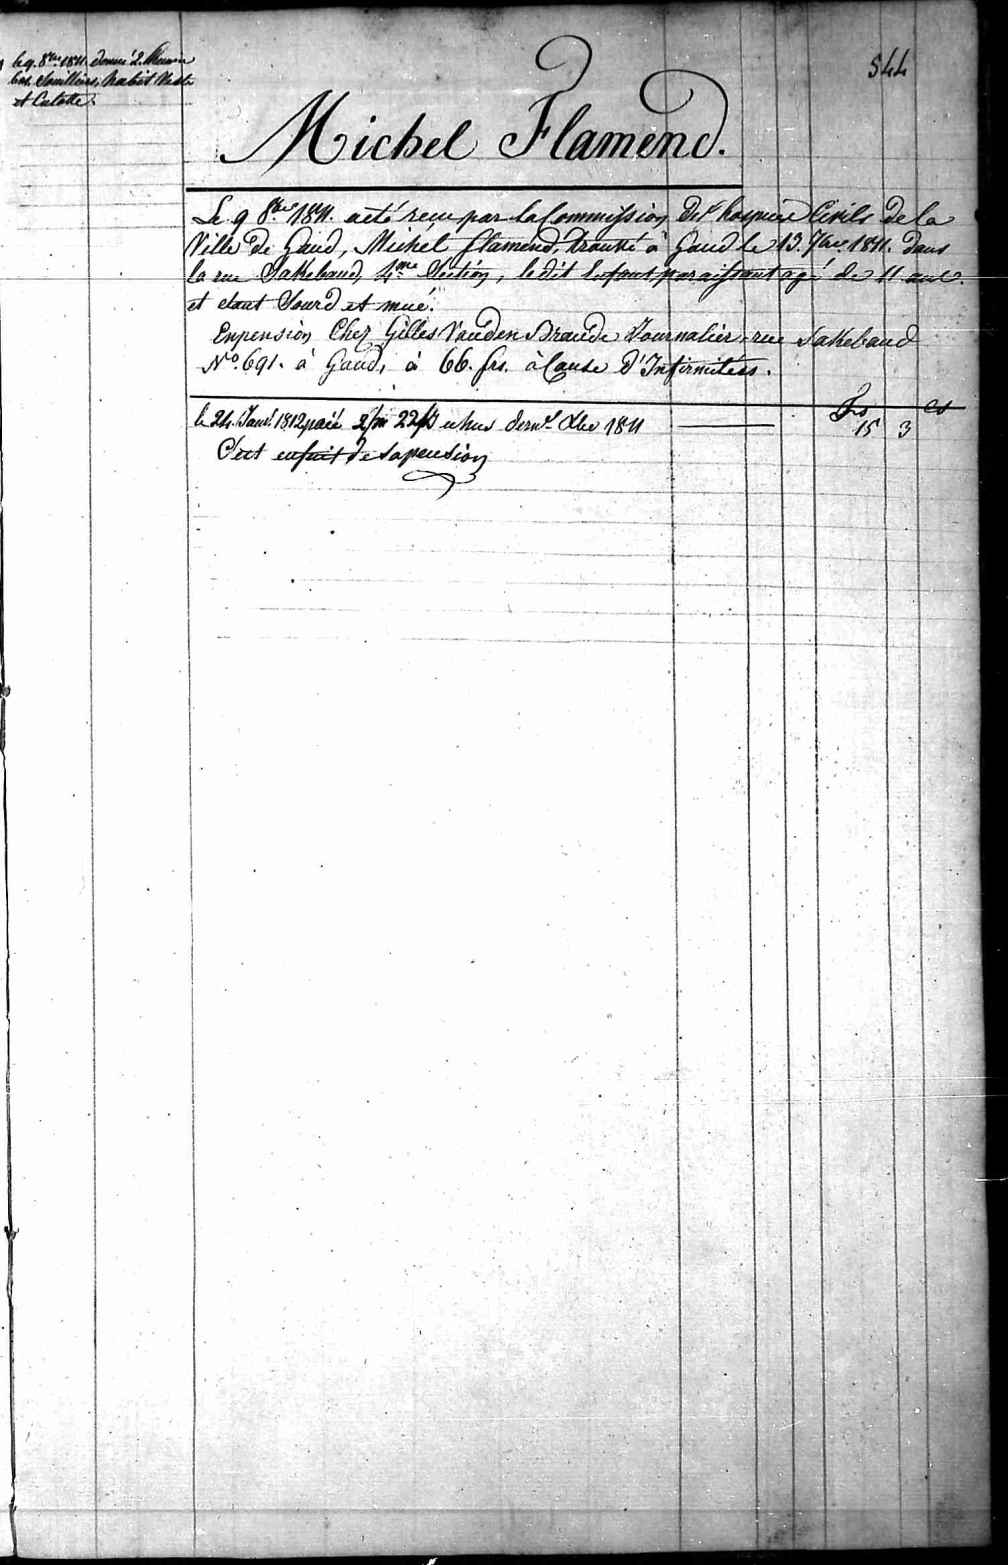 le 9. 8bre 1811. donné 2. Chemises
bas, Souilliers, habit Veste
et Culotte.
544
Michel Flamend.
Le 9 8bre 1811. a eté reçu par la Commission des hospices Civils de la
Ville de Gand, Michel flamend, trouvé à Gand le 13. 7bre 1811. dans
la rue Sakebaud, 4me Section, le dit Enfant paraissant agé de 11 ans.
et etant Sourd et mué.
En pension Chez Gilles Vanden Brande Journalier rue Sakebaud
No. 691. à Gand, à 66. frs. à Cause D'Infirmitées.
frs cs
le 24. Janv. 1812 paié 22 dern. Xbre 1811 15 3
C'est en fait de sa pension